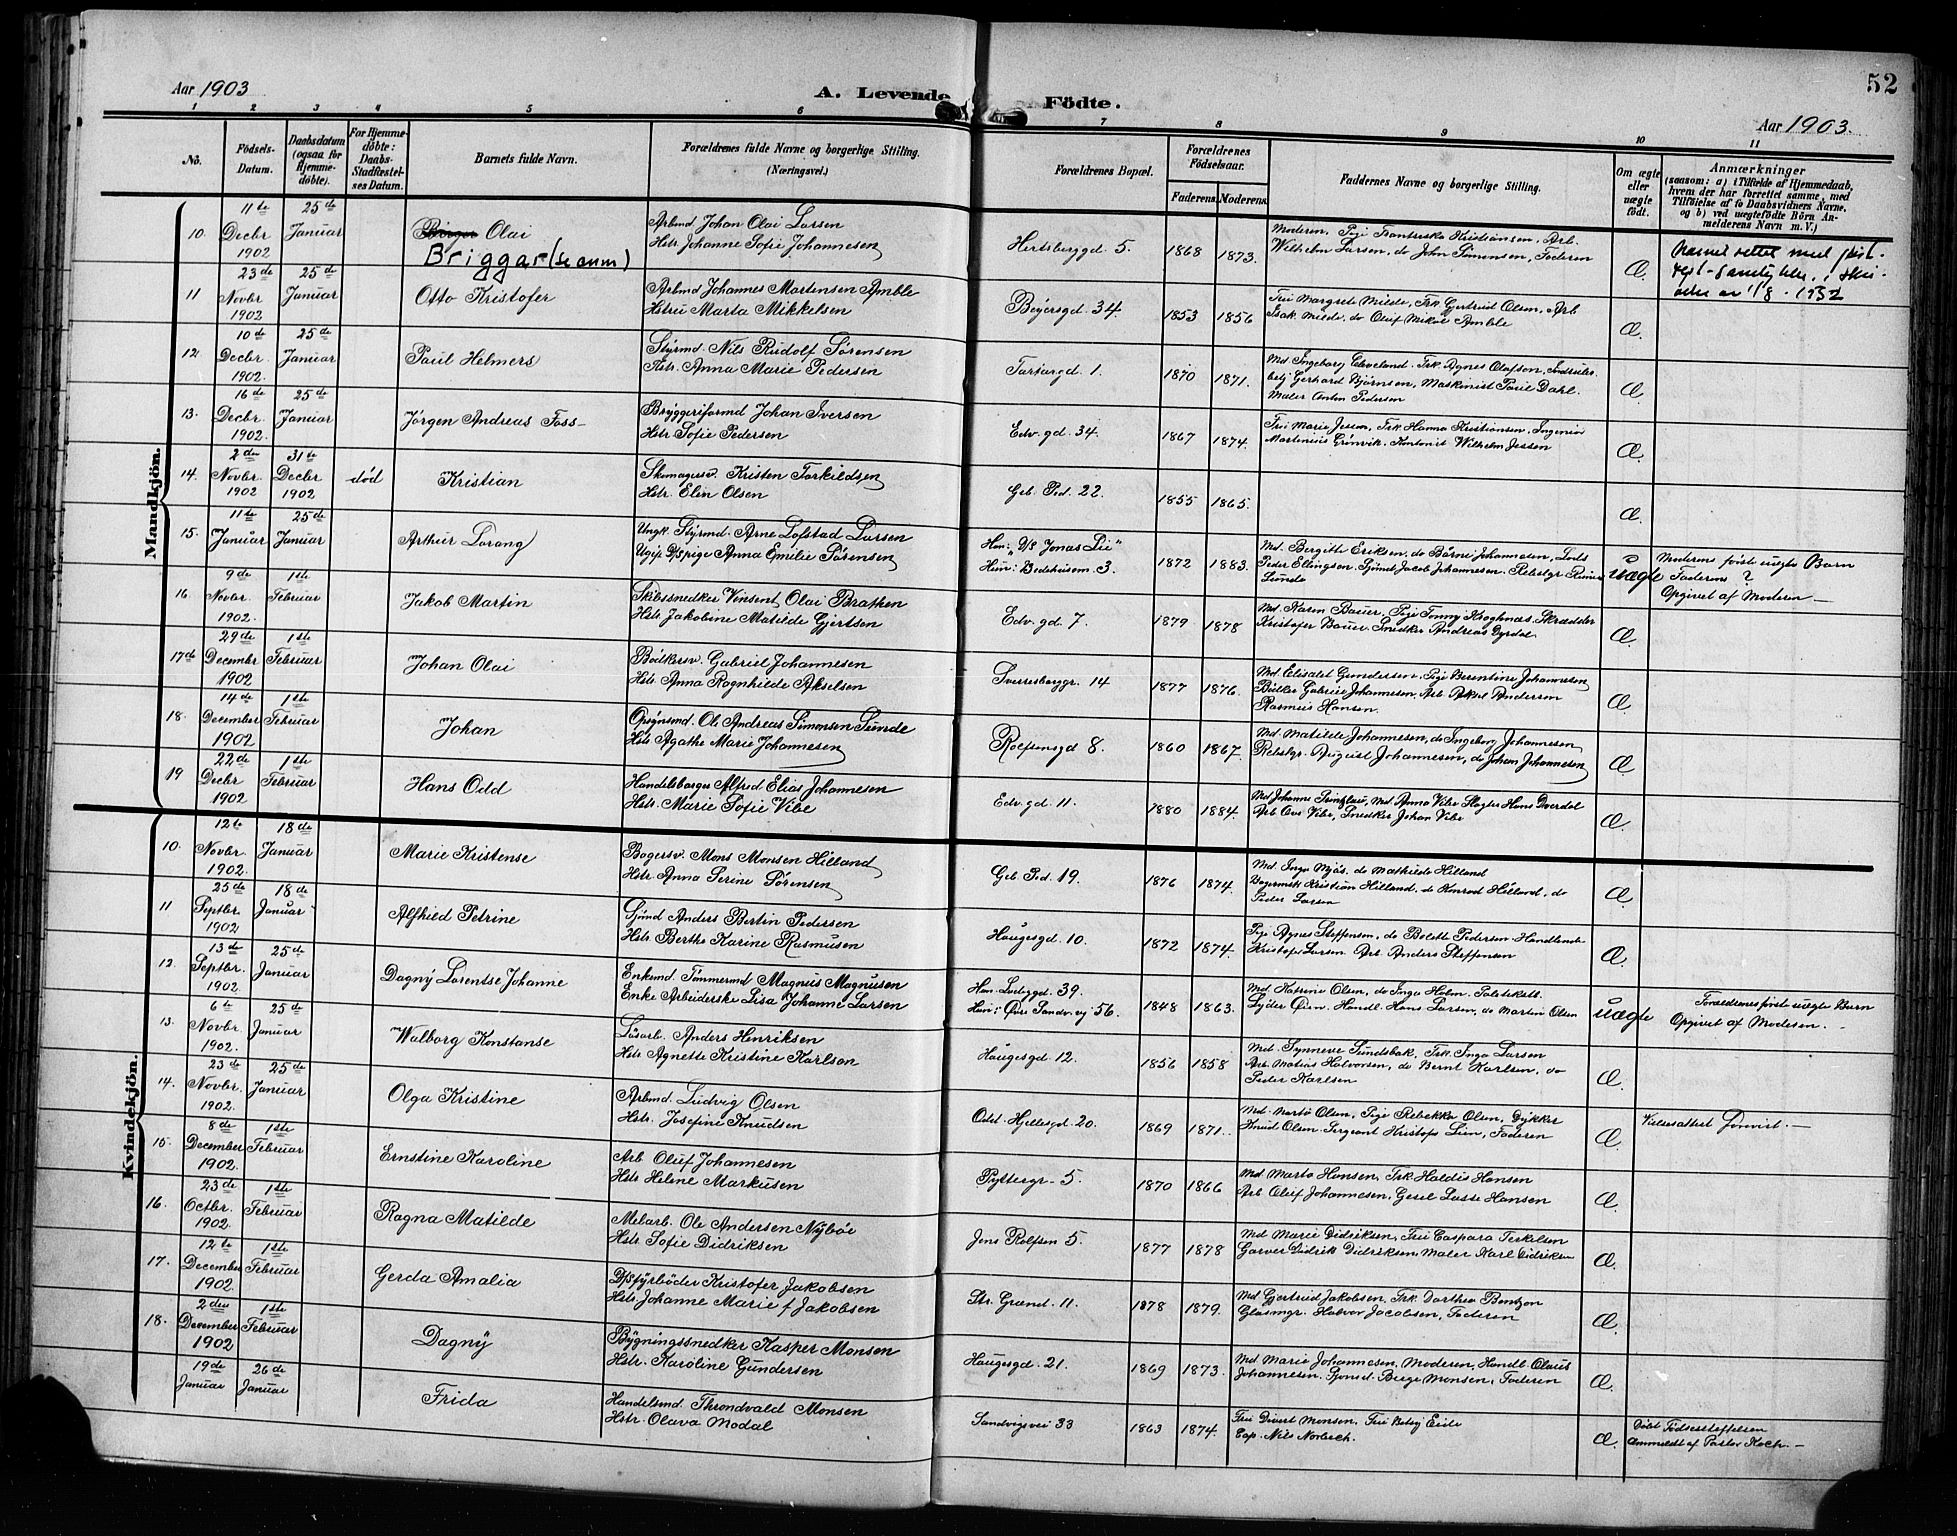 52
Aar 1903
A. Levende Födte.
Aar 1903.
1 2 3 4 5 6 7 8 9 10 11
No.
Fødsels-Datum.
Daabsdatum (ogsaa for Hjemmedøbte).
For Hjemmedøbte: Daabs-Stadfæstelses Datum.
Barnets fulde Navn.
Forældrenes fulde Navne og borgerlige Stilling. (Næringsvei.)
Forældrenes Bopæl.
Forældrenes Fødselsaar.
Faderens. Moderens.
Faddernes Navne og borgerlige Stilling.
Om ægte eller uægte født.
Anmærkninger
(saasom: a) i Tilfælde af Hjemmedaab,
hvem der har forrettet samme, med
Tilføielse af to Daabsvidners Navne.
og b) ved uægtefødte Börn An-
melderens Navn m. V.)
Mandkjön.
10. 11te Decbr 1902 25de Januar Birger Olai
Briggar (se anm)
Arbmd Johan Olai Larsen
Hstr Johanne Sofie Johannesen
Hertsberggd 5 1868 1873.
Moderen, Pige Frantziska Kristiansen, Arb.
Wilhelm Larsen, do John Simensen, Faderen
Æ
Navnet rettet med
11 23de Novbr 1902 25de Januar Otto Kristofer
Arbmd Johannes Martensen Amble
Hstru Marta Mikkelsen
Beyersgd. 34. 1853 1856
Fru Margret Milde, Frk Gjertrud Olsen, Arb
Isak Milde, do Oluf Mikal Amble
Æ.
12. 10de Decbr 1902. 25de Januar Paul Helmers
Styrmd. Nils Rudolf Sørensen
Hstr. Anna Marie Pedersen
Tartargd. 1. 1870 1871.
Md. Ingeborg Cleveland. Frk. Agnes Olafson,
Gerhard Bjørnsen, Maskinist Paul Dahl.
Maler Anton Pedersen
Æ.
13. 16de Decbr 1902. 25de Januar Jørgen Andreas Foss
Bryggeriformd Johan Iversen
Hstr Sofie Pedersen
Edv. gd 34. 1867 1874.
Fru Marie Jessen, Frk Hanna Kristiansen, Ingeniør
Martenius Grønvik. Kontorist Wilhelm Jessen
Æ.
14. 2den Novbr 1902 31te Decbr 1902 død Kristian
Skomagersv. Kristen Torkildsen
Hstr. Elin Olsen
Geb. Ped. 22. 1855 1865.
Æ.
15. 11te Januar 25de Januar Arthur Lorang
Ungk. Styrmd. Arne Lofstad Larsen
Ugip. D/Spige Anna Emilie Sørensen
Han: D/S "Jonas Lie"
Hun: Bedehussm. 3. 1872 1883.
Md. Bergitte Eriksen, do Børne Johannesen, Lods
Peder Ellingsen. Sjømd Jacob Johannesen. Rebslgr
Lunde
uægte
Moderens første uægte Barn
Faderens ?
Opgivet af Moderen —
16. 9de Novbr. 1902. 1ste Februar Jakob Martin
Skibssnedker Vinsent Olai Brathen
Hstr. Jakobine Matilde Gjertsen
Edv. gd. 7. 1879 1878
Md. Karen Bauer, Pige Tonny Kroghnæs. Skrædder
Kristofer Bauer. Snedker Andreas Dyrdal
Æ
17de 29de Decembr 1902 1ste Februar Johan Olai
Bødkersv. Gabriel Johannesen
Hstr. Anna Ragnhilde Akselsen
Sverresborggr. 14 1877 1876.
Md. Elisabet Gundersen, Pige Berentine Johannesen
Bødker Gabriel Johannesen, Arb Aksel Andersen
Rasmus Hansen.
Æ.
18. 14de December 1902 1ste Februar Johan
Opsynsmd. Ole Andreas Simonsen Sunde
Hstr. Agathe Marie Johannesen
Rolfsensgd 8. 1860 1867.
Md. Matilde Johannesen, do Ingeborg Johannesen
Rebslgr. August Johannesen, do Johan Johannesen
Æ
19 22de Decbr 1902 1ste Februar Hans Odd
Handelsborger Alfred Elias Johannesen
Hstr. Marie Sofie Vibe
Edv. gd 11. 1880 1884.
Md Johanne, Md. Anna Vibe Slagter Hans Dverdal
Arb Ove Vibe, Snedker Johan Vibe
Æ.
Kvindekjön.
10. 12te Novbr. 1902. 18de Januar Marie Kristense
Bagersv. Mons Monsen Hilland
Hstr. Anna Serine Sørensen
Geb. Ped. 19. 1876 1874.
Md. Inga Mjøs, do Mathilde Hilland
Kristian Hilland, do Konrad Hilland, do
Peder Larsen
Æ.
11 25de Septbr. 1902 18de Januar Alfhild Petrine
Sjømd Anders Bertin Pedersen
Hstr. Berthe Karine Rasmusen
Haugesgd. 10. 1872 1874.
Pige Agnes Steffensen, do Bolette Pedersen
Kristofer Larsen Arb. Anders Steffensen
Æ.
12. 13de Septbr. 1902. 25de Januar Dagny Lorentse Johanne
Enkemd. Tømmermd Magnus Magnusen
Enke Arbeiderske Lisa Johanne Larsen
Han: 39.
Hun: Øvre Sandv.vg 56. 1848 1863.
Md. Katrine Olsen, do Inga Holm.
Lyder Øien. Handl. Hans Larsen, do Martin Olsen
uægte
Forældrenes første uægte Barn
Opgivet af Moderen. —
13. 6te Novbr. 1902. 25de Januar. Walborg Konstanse
Løsarb. Anders Henriksen
Hstr. Agnette Kristine Karlson
Haugesgd 12. 1856 1858
Md. Synneve Sundsbak, Frk. Inga Larsen
Arb. Matias Halvorsen, do Bernt Karlsen, do
Peder Karlsen
Æ.
14. 23de Novbr. 1902. 25de Januar Olga Kristine
Arbmd. Ludvig Olsen
Hstr. Josefine Knudsen
Odd. Hjellesgd. 20. 1869 1871.
Md. Marta Olsen, Pige Rebekka Olsen, Dykker
Knud Olsen. Sergeant Kristofer Lien, Faderen
Æ.
Vielsesattest forevist. —
15. 8de December 1902. 1ste Februar Ernstine Karoline
Arb Oluf Johannesen
Hstr Helene Markusen
Pyttergr. 5. 1870 1866
Md. Marta Hansen, Frk Haldis Hansen
Arb Oluf Johannesen, Gesel Lasse Hansen
Æ.
16. 23de Octbr. 1902. 1ste Februar Ragna Matilde
Melarb. Ole Andersen Nybøe
Hstr Sofie Didriksen
Jens Rolfsen 5. 1877 1878
Md Marie Didriksen, Fru Caspara Terkelsen
Garver Didrik Didriksen, Maler Karl Didriksen
Æ.
17. 12te December 1902. 1ste Februar Gerda Amalia
D/Sfyrbøder Kristofer Jakobsen
Hstr Johanne Marie f Jakobsen
Str. Grænd. 11. 1878 1879.
Md Gjertrud Jakobsen, Frk. Dorthea Bentzon
Glasmgr. Halvor Jacobsen, Faderen
Æ.
18. 2den December 1902 1ste Februar Dagny
Bygningssnedker Kasper Monsen
Hstr. Karoline Gundersen
Haugesgd. 21. 1869 1873.
Md. Marie Johannesen, Moderen, Handl. Olaus
Johannesen. Sjømd. Berge Monsen, Faderen
Æ.
19de Januar 26de Januar Frida
Handelsmd. Throndvald Monsen
Hstr. Olava Modal
Sandvigsvei 33 1863 1874.
Fru Divert Monsen, Fru Betsy Eide
Cap. Nils Norbech.
Æ.
Døbt Fødselsstiftelsen
Anmeldt af Pastor Koch. —